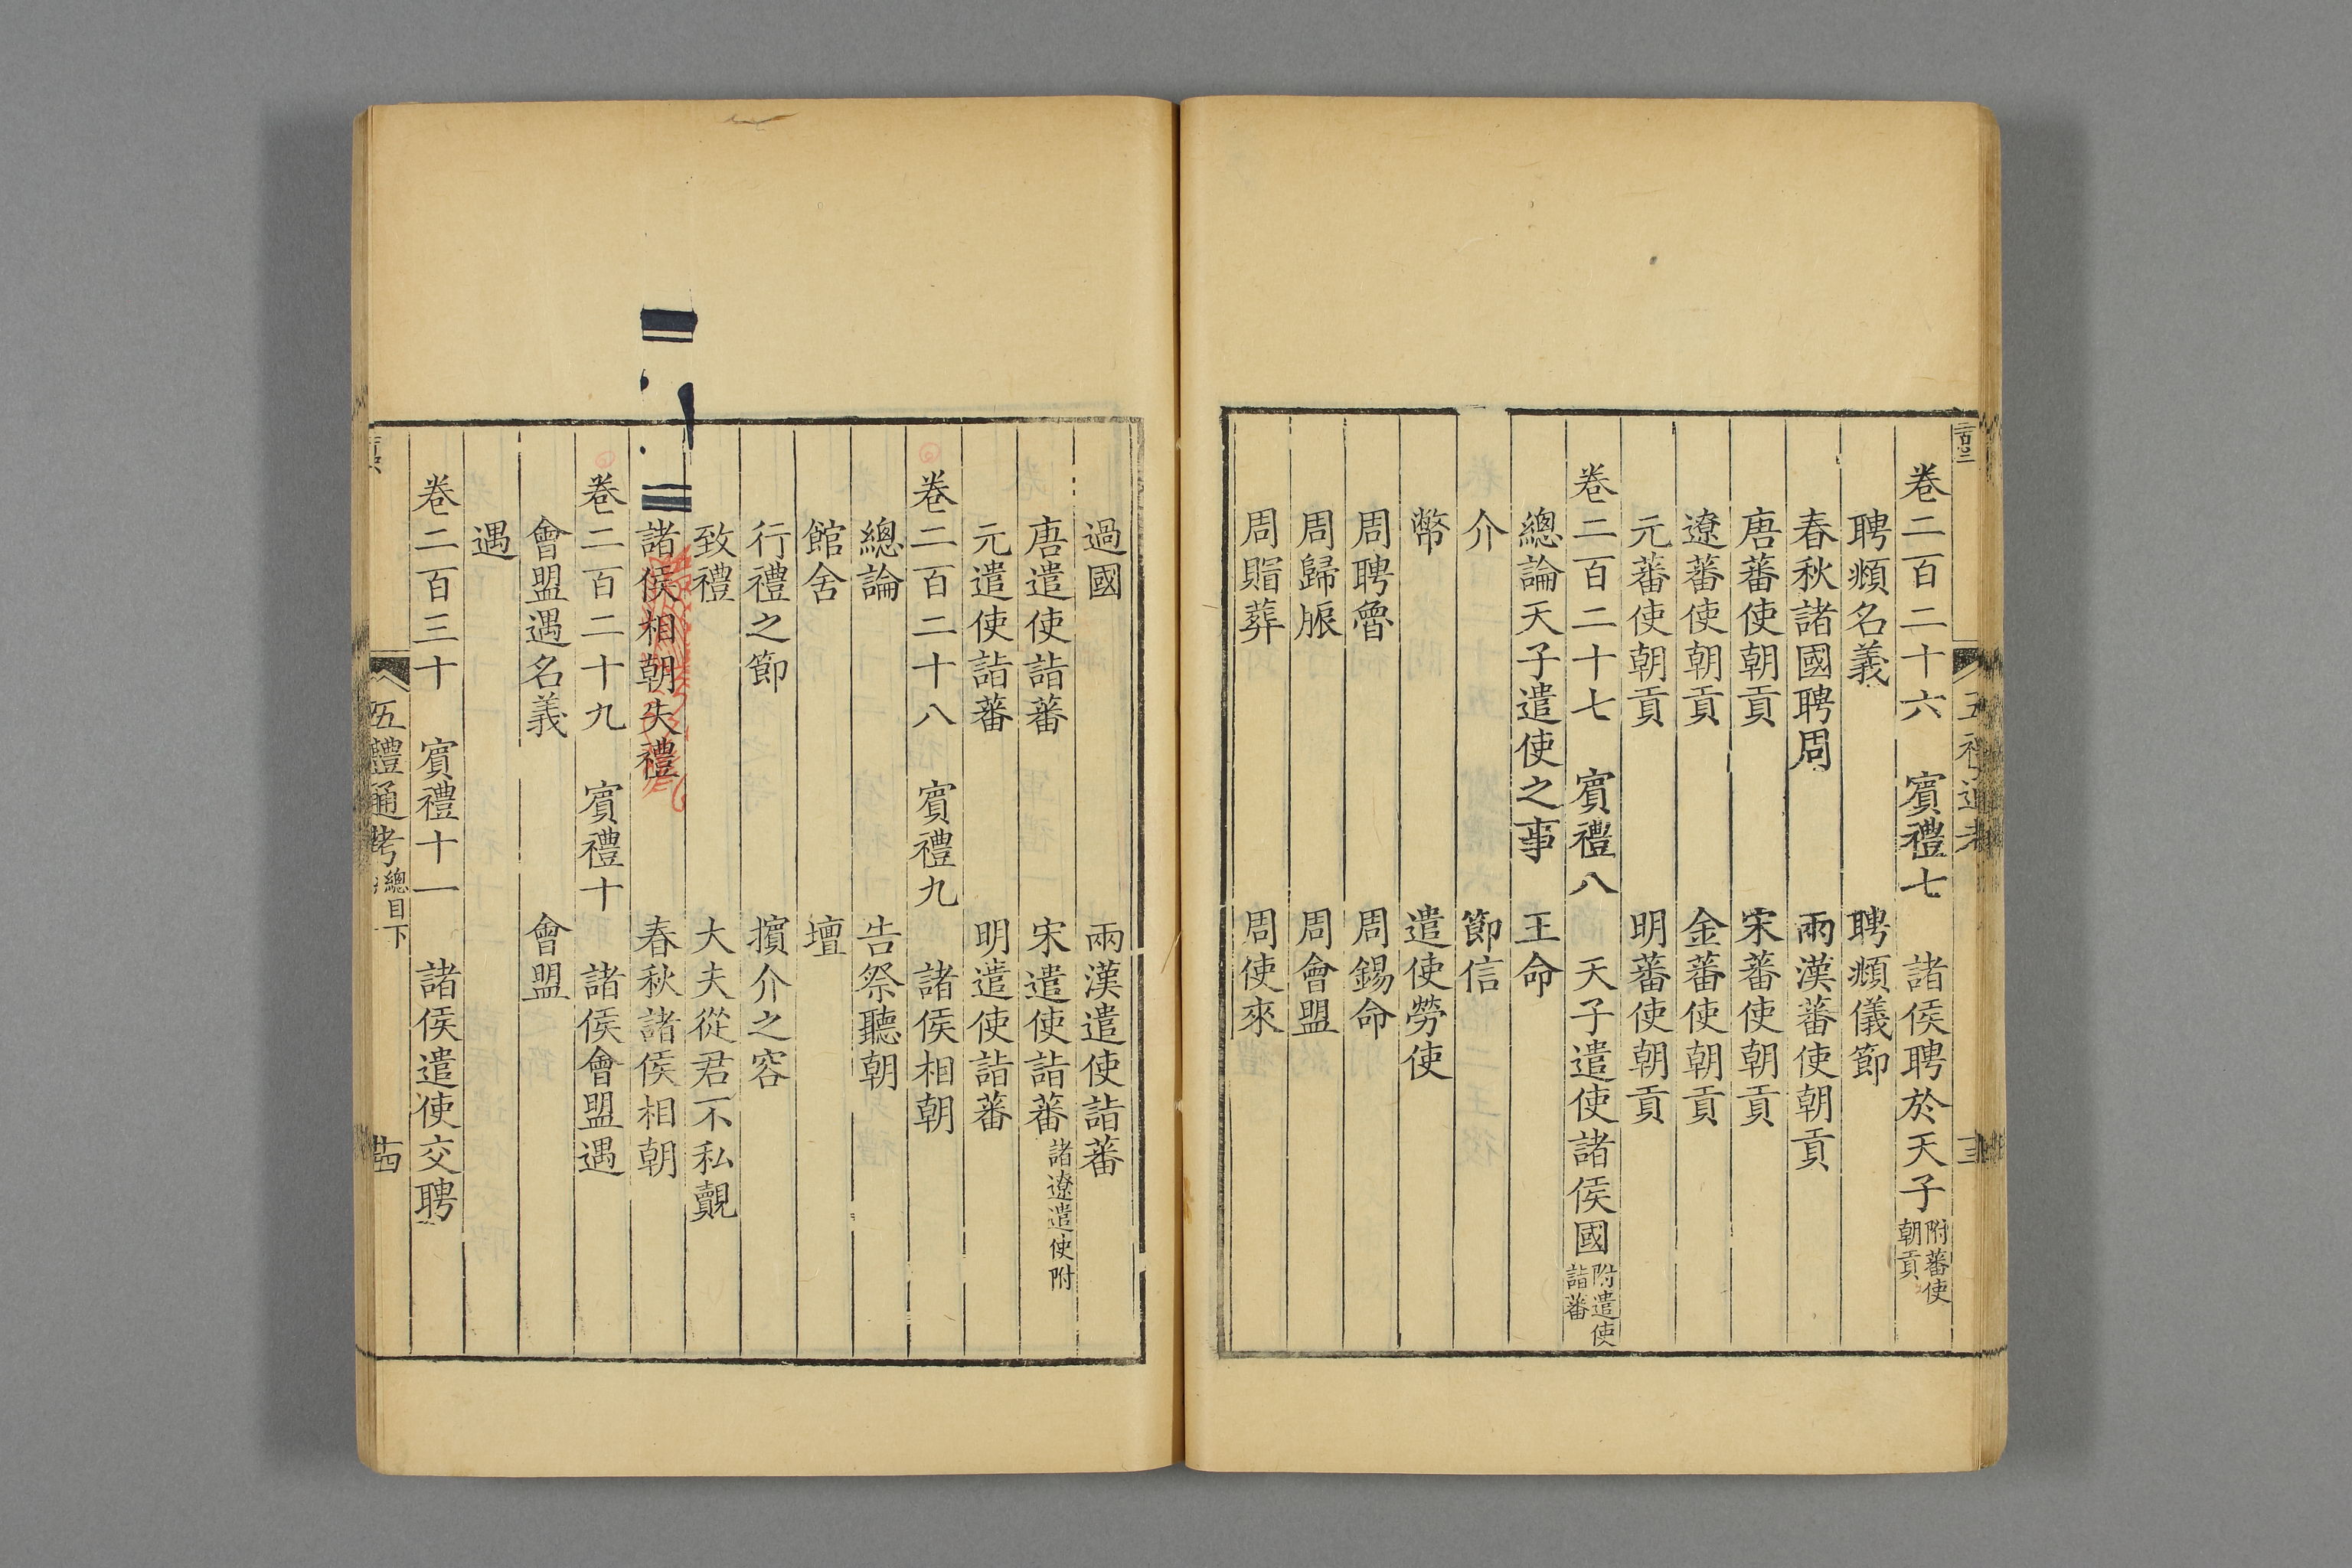 卷二百二十六　賓禮七　諸侯聘於天子附蕃使朝貢
聘頫名義　聘頫儀節
春秋諸國聘周　兩漢蕃使朝貢
唐蕃使朝貢　宋蕃使朝貢
遼蕃使朝貢　金蕃使朝貢
元蕃使朝貢　明蕃使朝貢
卷二百二十七　賓禮八　天子遣使諸侯國附遣使詣蕃
總論天子遣使之事　王命
介　節信
幣　遣使勞使
周聘魯　周錫命
周歸脤　周會盟
周賵葬　周使來
過國　兩漢遣使詣蕃
唐遣使詣蕃　宋遣使詣蕃諸遼遣使附
元遣使詣蕃　明遣使詣蕃
卷二百二十八　賓禮九　諸侯相朝
總論　告祭聽朝
館舍　壇
行禮之節　擯介之容
致禮　大夫從君不私覿
諸侯相朝失禮　春秋諸侯相朝
卷二百二十九　賓禮十　諸侯會盟遇
會盟遇名義　會盟
遇
卷二百三十　賓禮十一　諸侯遣使交聘
五禮通考　總目下　十四